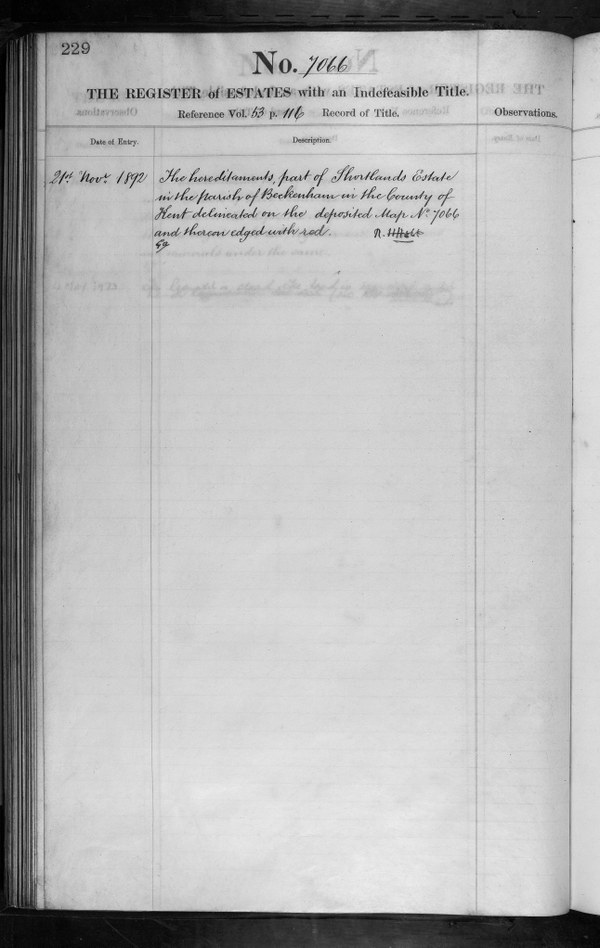 229
No. 7066
THE REGISTER of ESTATES with an Indefeasible Title.
Reference Vol. 53 p. 116 Record of Title.
Observations.
Date of Entry.
Description.
21st Novr. 1892
The hereditaments, part of Shortlands Estate
in the parish of Beckenham in the County of
Kent delineated on the deposited Map No. 7066
and thereon edged with red.